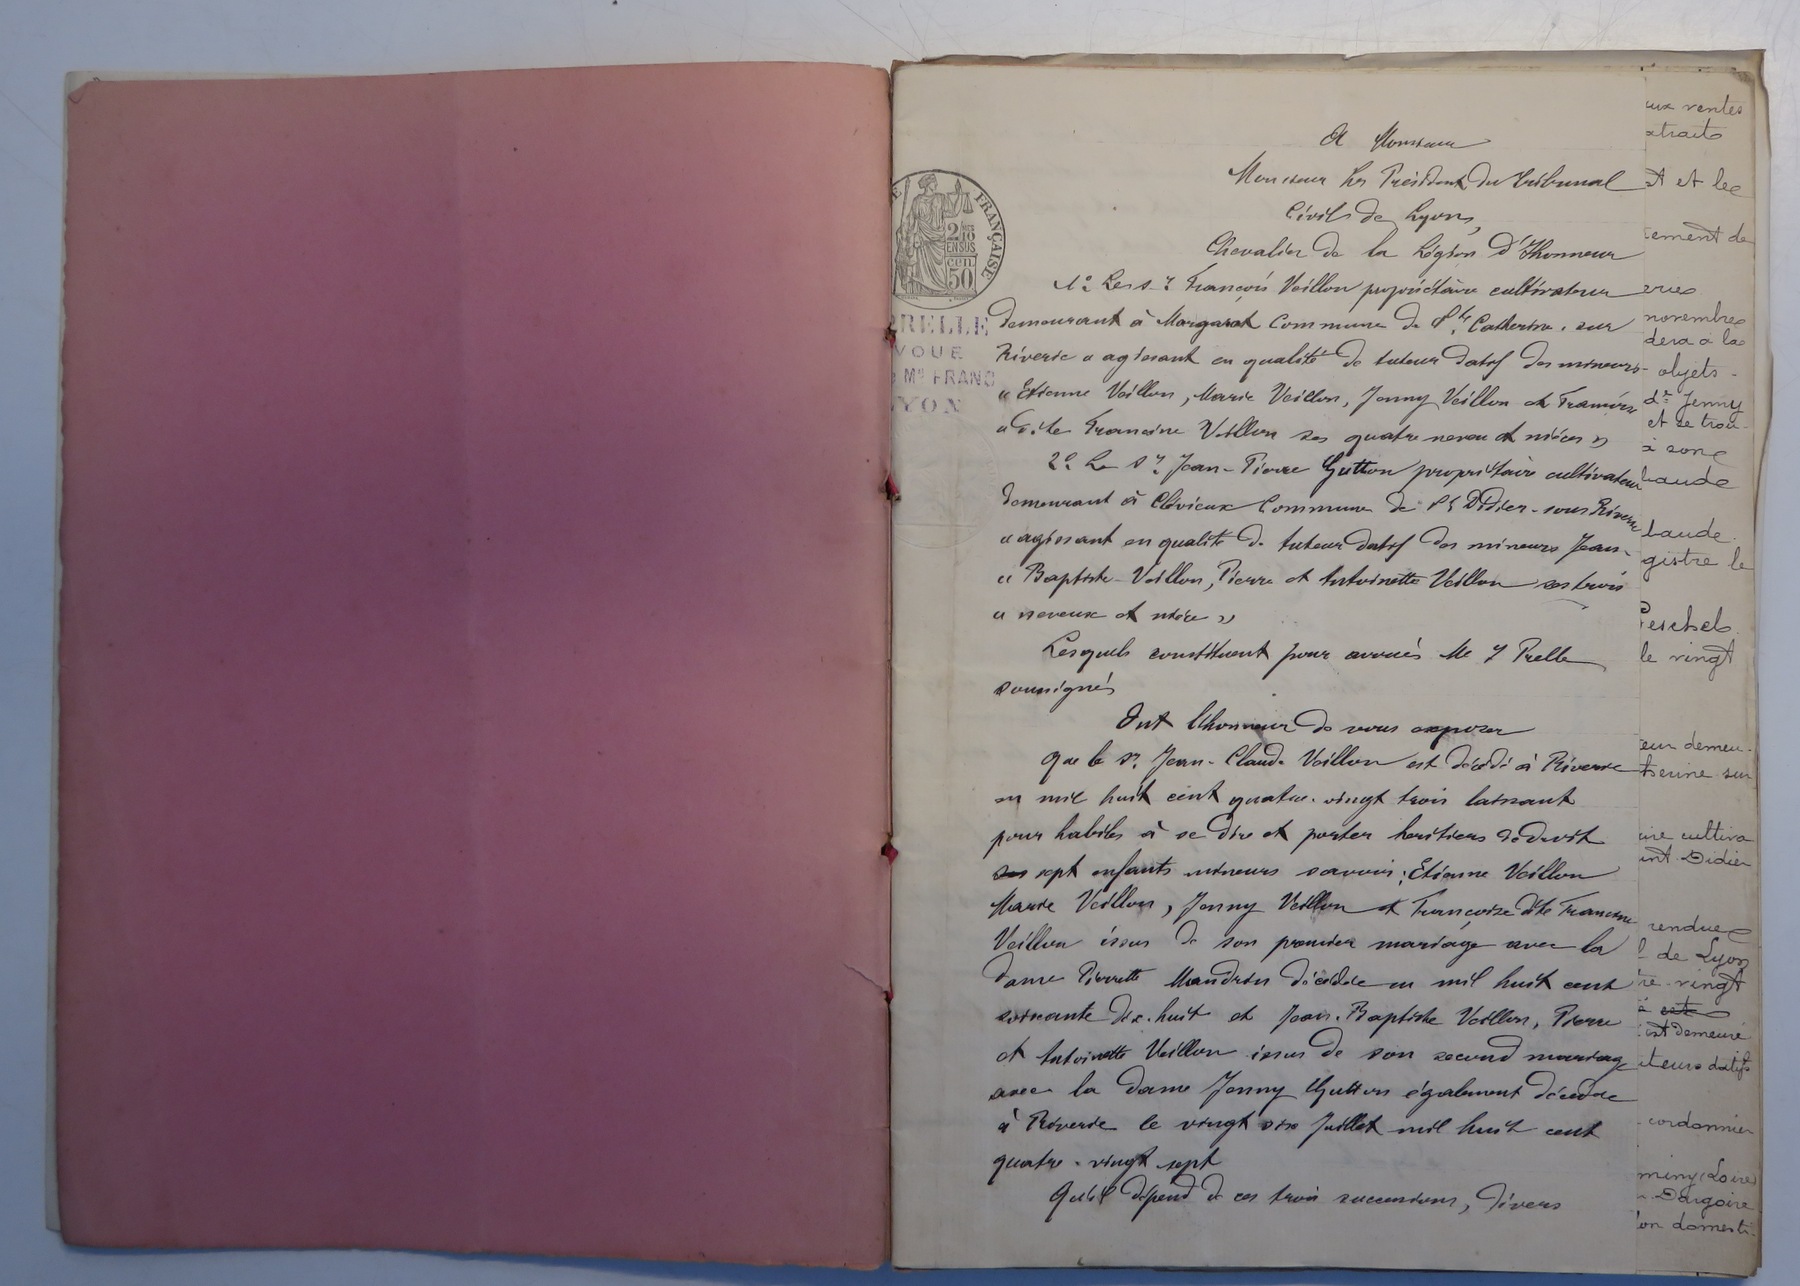 FRANÇAISE
2/10
EN SUS
cen
50
RELLE
VOUE
Me FRANC
YON
A Monsieur
Monsieur les Président du Tribunal
Civils de Lyons,
Chevalier de la Légion d'Honneur
1º Les sr François Veillon propriétaire cultivateur
demeurant à Margarat commune de Ste Catherine sur
Riverie « agissant en qualité de tuteur datif des mineurs
« Etienne Veillon, Marie Veillon, Jenny Veillon et Françoise
« dite Francine Veillon ses quatre neveu et nièces »
2º Le Sr Jean-Pierre Gutton propriétaire cultivateur
demeurant à Clévieux commune de St Didier-sous Riverie
« agissant en qualité de tuteur datif des mineurs Jean-
« Baptiste Veillon, Pierre et Antoinette Veillon ses trois
« neveux et nièce »
Lesquels constituent pour avoués Me Y Prelle
soussignés
Ont l'honneur de vous exposer
Que le Sr Jean-Claude Veillon est décédé à Riverie
en mil huit cent quatre-vingt trois laissant
pour habiles à se dire et porter heritiers de droit
ses sept enfants mineurs savoir: Etienne Veillon
Marie Veillon, Jenny Veillon et Françoise dite Francine
Veillon issus de son premier mariage avec la
dame Pierrette Mandrin décédée en mil huit cent
soixante dix-huit et Jean-Baptiste Veillon, Pierre
et Antoinette Veillon issus de son second mariage
avec la dame Jenny Gutton également décédée
à Riverie le vingt six Juillet mil huit cent
quatre-vingt sept
Qu'il dépend de ces trois successions, divers
ux ventes
xtraits
et le
tement de
novembre
dera à la
objets
dlle Jenny
et se trou-
à son
baude
baude
gistre le
Peschel
le vingt
eur demeu-
therine sur
ire cultiva
int Didier
rendue
l de Lyon
re-vingt
à
est demeuré
uteurs datifs
cordonnier
miny (Loire)
Dargoire
lon domesti-